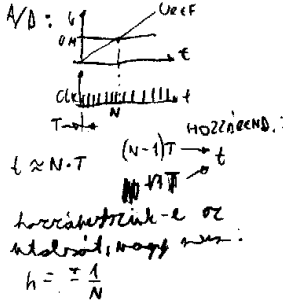 A/D:
U
UREF
UM
t
Clk
t
N
T
HOZZÁREND.:
t ≈ N·T
(N-1)T
t
NT
hozzávesszük-e az
utolsót, vagy nem:
h = ± 1/N